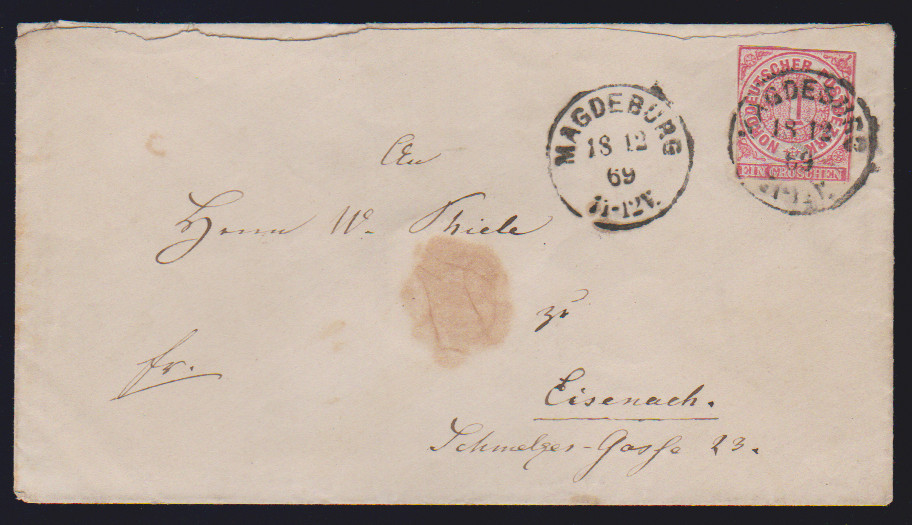 MAGDEBURG
18 12
69
11-12V.
NORDDEUTSCHER POSTBEZIRK
1
EIN GROSCHEN
MAGDEBURG
18 12
69
11-12V.
An
Herrn W. Thiele
zu
fr.
Eisenach.
Schmelzer-Gasse 23.